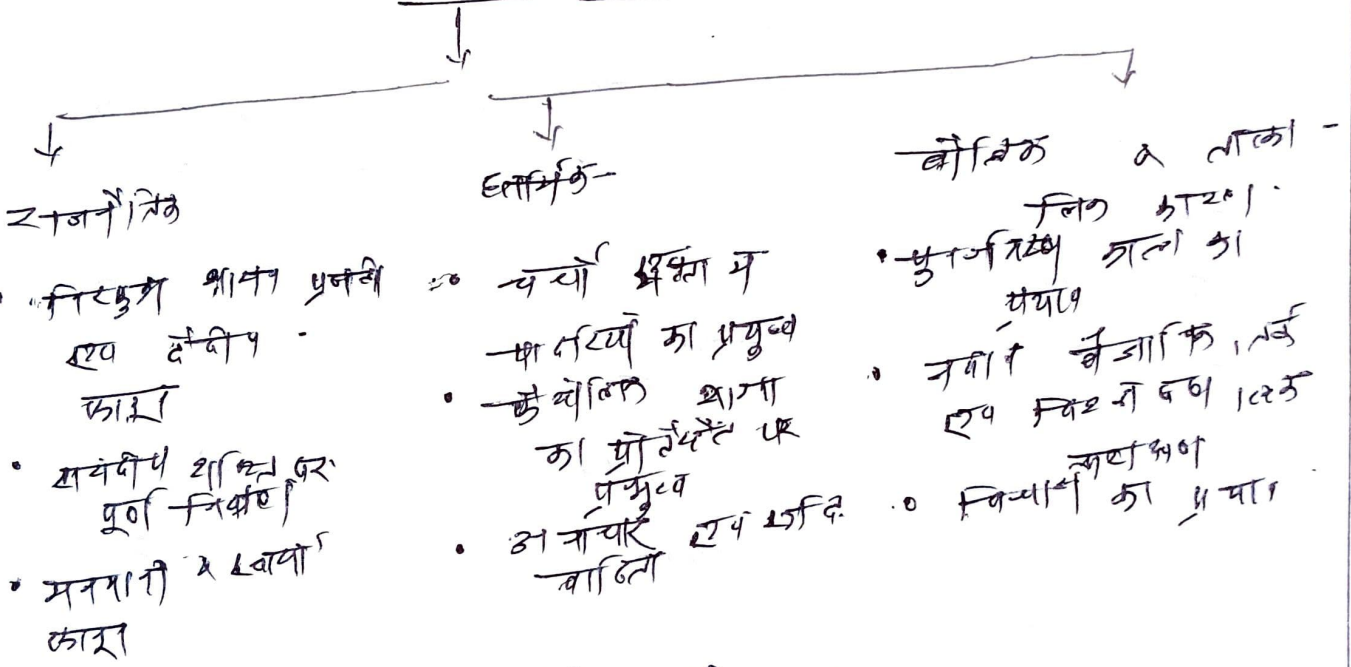 राजनैतिक
• निरंकुश शासन प्रणाली
एवं दैवीय
कारण
• संसदीय शक्ति पर
पूर्ण नियंत्रण
• मनमानी व स्वार्थी
कारण
धार्मिक-
चर्चों में
पादरियों का प्रभुत्व
• कैथोलिक शाखा
का प्रोटेस्टेंट पर
प्रभुत्व
• अनाचार एवं रूढ़ि
वादिता
बौद्धिक व तत्का-
लिक कारण
• पुनर्जागरण काल का
प्रभाव
• नवीन वैज्ञानिक, तर्क
एवं
• विचारों का प्रचार